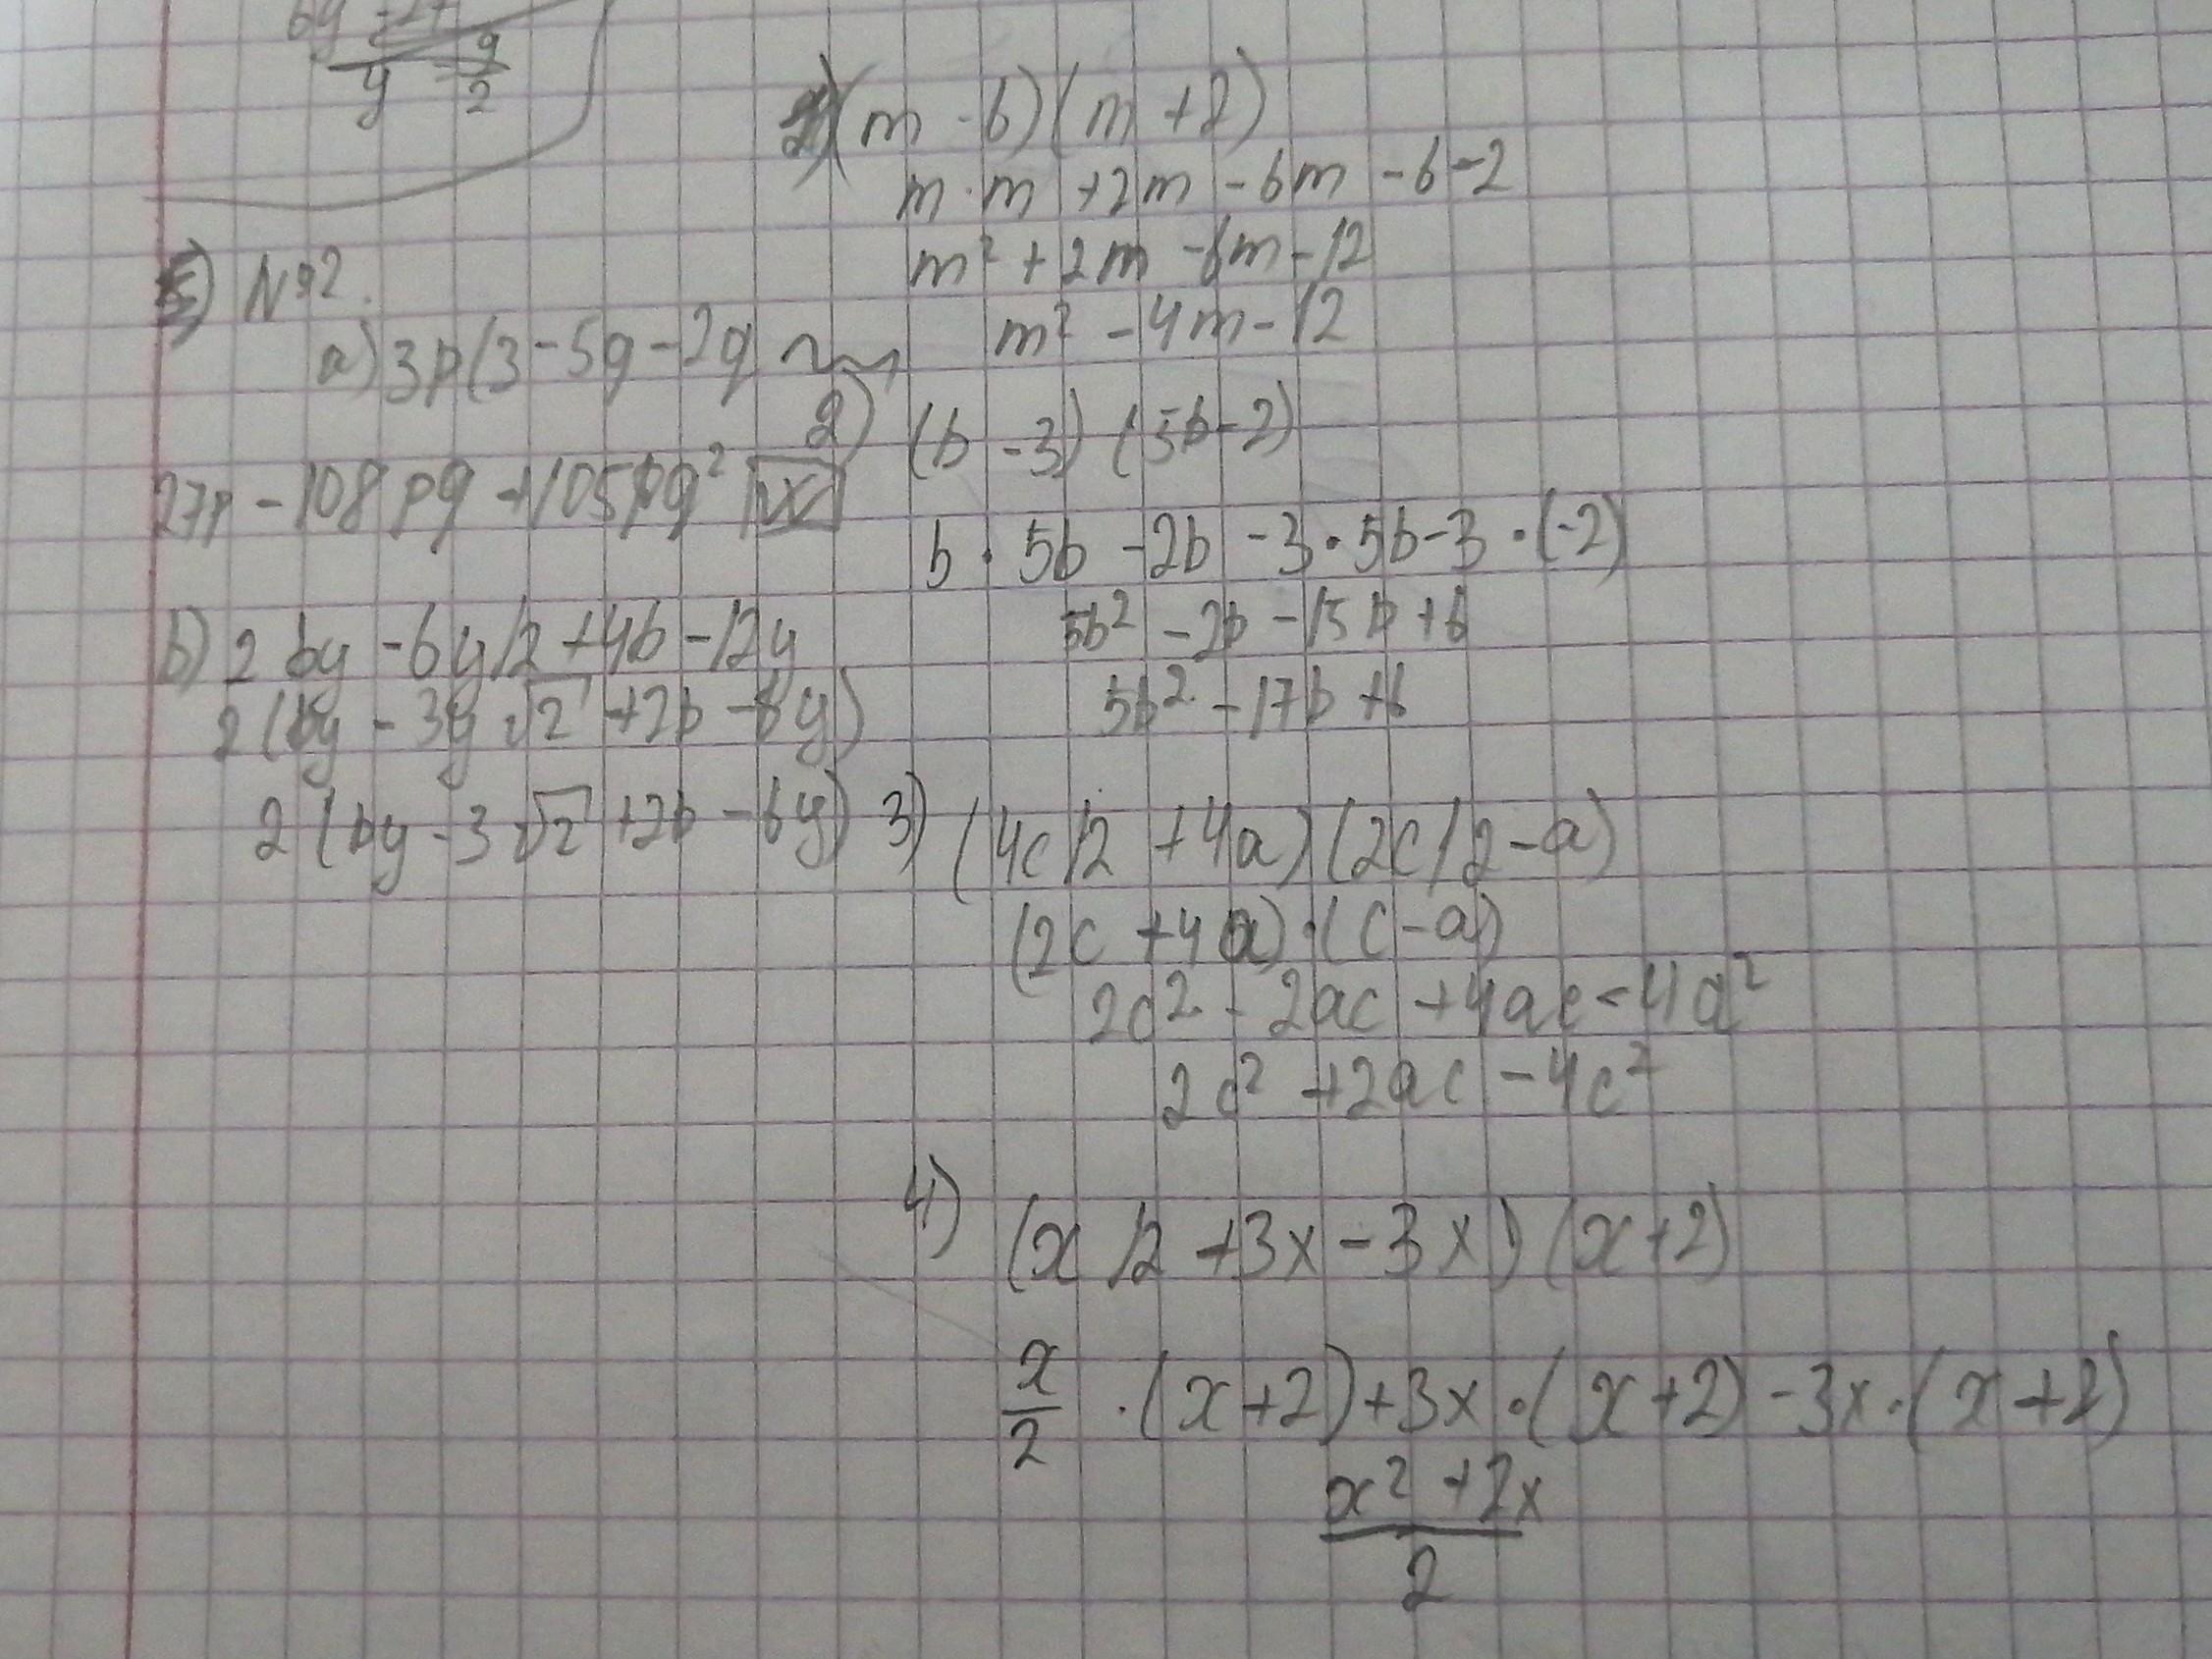 y
9
2
1) (m - 6)(m + 2)
m · m + 2m - 6m - 6 - 2
m² + 2m - 6m - 12
m² - 4m - 12
5) №2.
a) 3p(3 - 5q - 2q
27p - 108pq + 105pq²
b) 2by - 6y/2 + 4b - 12y
2(by - 3y√2 + 2b - 6y)
2(by - 3√2 + 2b - 6y)
2) (b - 3)(5b - 2)
b · 5b - 2b - 3 · 5b - 3 · (-2)
5b² - 2b - 15b + 6
5b² - 17b + 6
3) (4c/2 + 4a)(2c/2 - a)
(2c + 4a) · (c - a)
2c² - 2ac + 4ac - 4a²
2c² + 2ac - 4c²
4) (x/2 + 3x - 3x)(x + 2)
x/2 · (x + 2) + 3x · (x + 2) - 3x · (x + 2)
x² + 2x
2